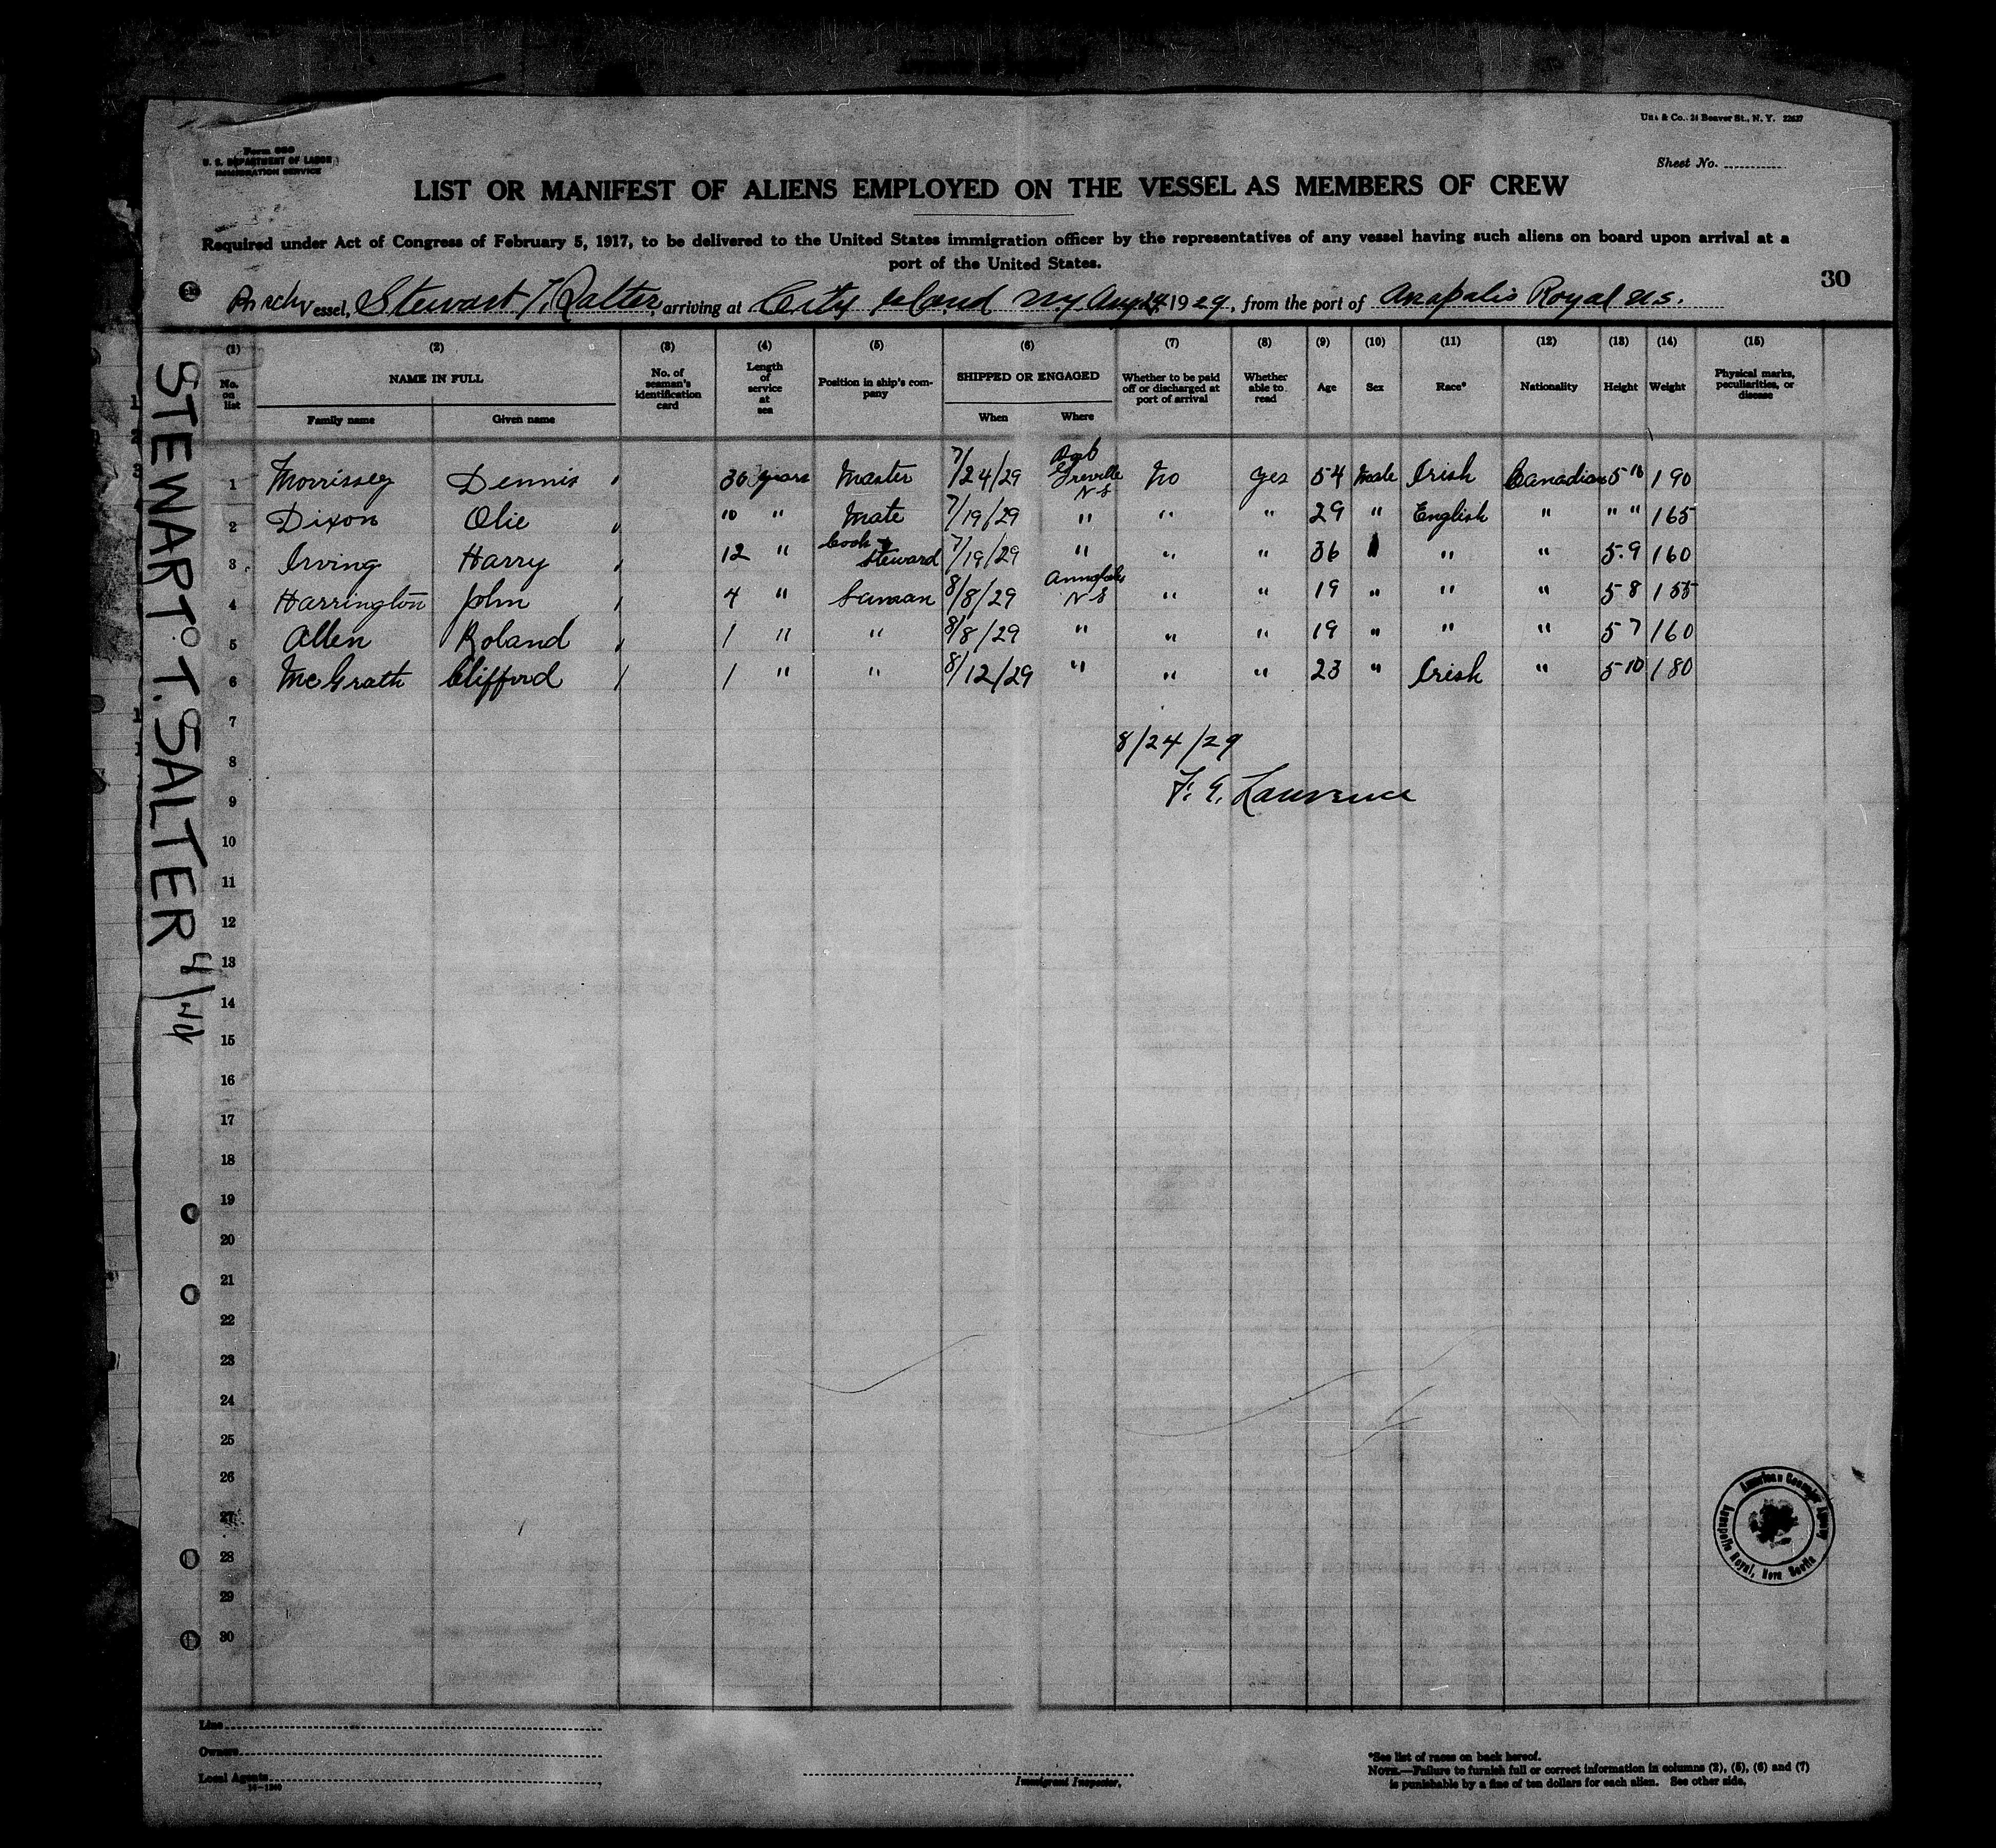 Form 680
U. S. DEPARTMENT OF LABOR
IMMIGRATION SERVICE
& Co., 24 Beaver St., N. Y. 22627
Sheet No.
LIST OR MANIFEST OF ALIENS EMPLOYED ON THE VESSEL AS MEMBERS OF CREW
Required under Act of Congress of February 5, 1917, to be delivered to the United States immigration officer by the representatives of any vessel having such aliens on board upon arrival at a
port of the United States.
30
Br sch Vessel, Stewart T. Salter, arriving at City Island N.Y. Aug 24 1929, from the port of Anapalis Royal N.S.
(1) (2) (3) (4) (5) (6) (7) (8) (9) (10) (11) (12) (13) (14) (15)
No. on list NAME IN FULL Family name Given name No. of seaman's identification card Length of service at sea Position in ship's company SHIPPED OR ENGAGED When Where Whether to be paid off or discharged at port of arrival Whether able to read Age Sex Race* Nationality Height Weight Physical marks, peculiarities, or disease
1 Morrissey Dennis 30 years Master 7/24/29 Port Greville N S No Yes 54 Male Irish Canadian 5 10 190
2 Dixon Olie 10 " Mate 7/19/29 " " " 29 " English " " " 165
3 Irving Harry 12 " Cook & Steward 7/19/29 " " " 36 " " 5.9 160
4 Harrington John 4 " Seaman 8/8/29 Annapolis N S " " 19 " " " 5 8 155
5 Allen Roland 1 " " 8/8/29 " " " 19 " " " 5 7 160
6 McGrath Clifford 1 " " 8/12/29 " " " 23 " Irish " 5 10 180
7
8/24/29
8
F. E. Lawrence
9
10
11
12
13
14
15
16
17
18
19
20
21
22
23
24
25
26
27
28
29
30
STEWART T. SALTER
American Consular Agency
Annapolis Royal, Nova Scotia
Line
Owners
Local Agents
14-1240
Immigrant Inspector.
*See list of races on back hereof.
NOTE.—Failure to furnish full or correct information in columns (2), (5), (6) and (7)
is punishable by a fine of ten dollars for each alien. See other side.